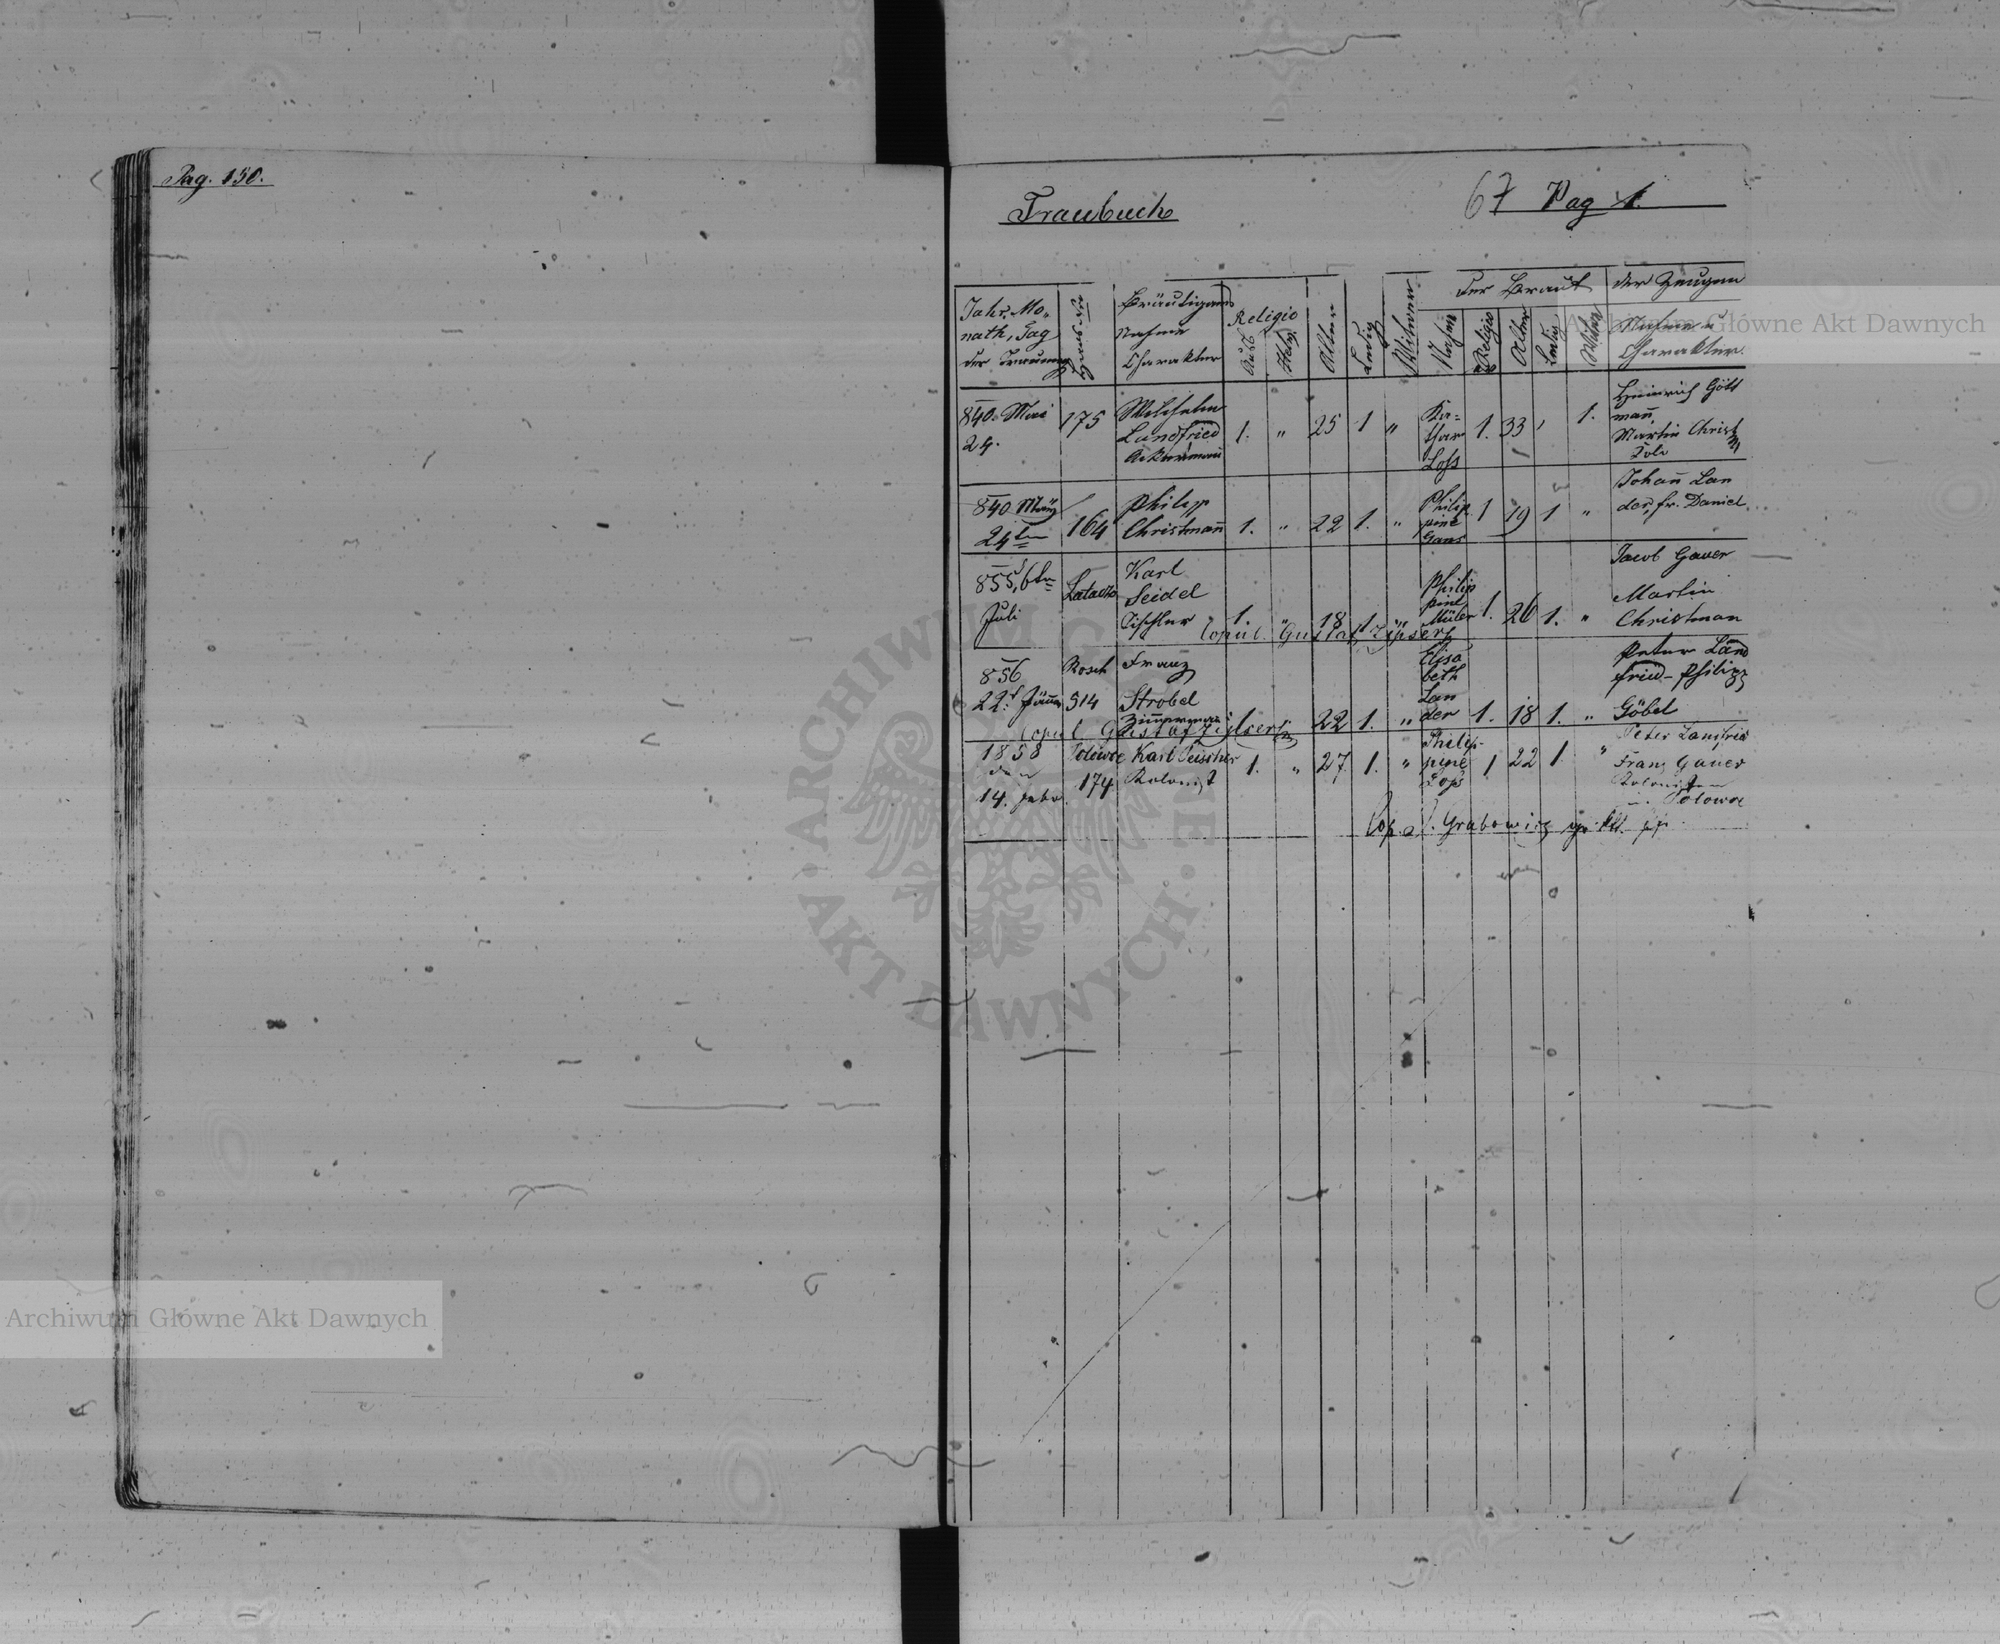 Pag. 150.
Traubuch
67 Pag 1.
Jahr, Mo-
nath, Tag
der Trauung
Haus Nro
Bräutigams
Nahme
Charakter
Religio
Augb
Helv
Alter
Ledig
Witwer
Der Braut
Nahme
Religio
Alter
Ledig
Witwe
der Zeugen
Nahme u
Charakter.
840. Mai
24.
175
Wilhelm
Landfried
Ackermann
1. " 25 1 "
Ka-
thar
Loss
1. 33 1.
Heinrich Gött
mañ,
Martin Christ
840 März
24ten
164
Philipp
Christmañ
1. " 22 1. "
Philip
pine
Gans
1 19 1 "
Johañ Lan
der, fr. Daniel
855, 6ten
Juli
Latacz
Karl
Seidel
Tischler
1. " 18 1. "
Philip
pine
Müler
1. 26 1. "
Jacob Gauer
Martin
Christman
Copul. Gustaf Zipser
856
22t Jäner
Rosch
514
Franz
Strobel
Zimmermañ
1. 22 1. "
Elisa
beth
Lan
der
1. 18 1. "
Peter Land
fried - Philipp
Göbel
Copul Gustaf Zipser
1858
den
14. Febr.
Polowce
174
Karl Teissler
Kolonist
1. " 27. 1. "
Philip-
pine
Lops
1 22 1. "
Peter Lanfried
Franz Gauer
Kolonisten
Polowce
Cop. Grabowicz
Archiwum Główne Akt Dawnych
Archiwum Główne Akt Dawnych
ARCHIWUM GŁÓWNE
AKT DAWNYCH